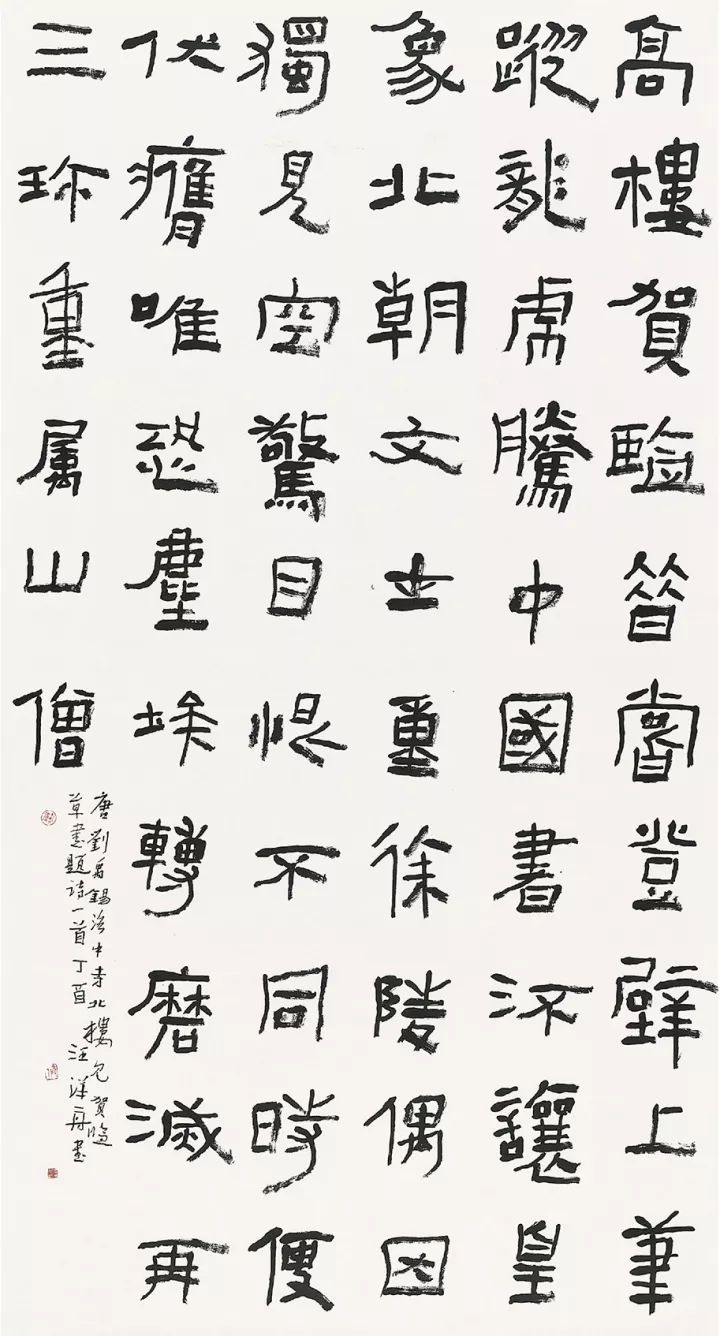 髙樓賀監昔曾登壁上筆
蹤龍虎騰中國書流讓皇
象北朝文士重徐陵偶因
獨見空驚目恨不同時便
伏膺唯恐塵埃轉磨滅再
三珍重属山僧
唐劉禹錫洛中寺北樓見賀監
草書題詩一首丁酉汪洋書